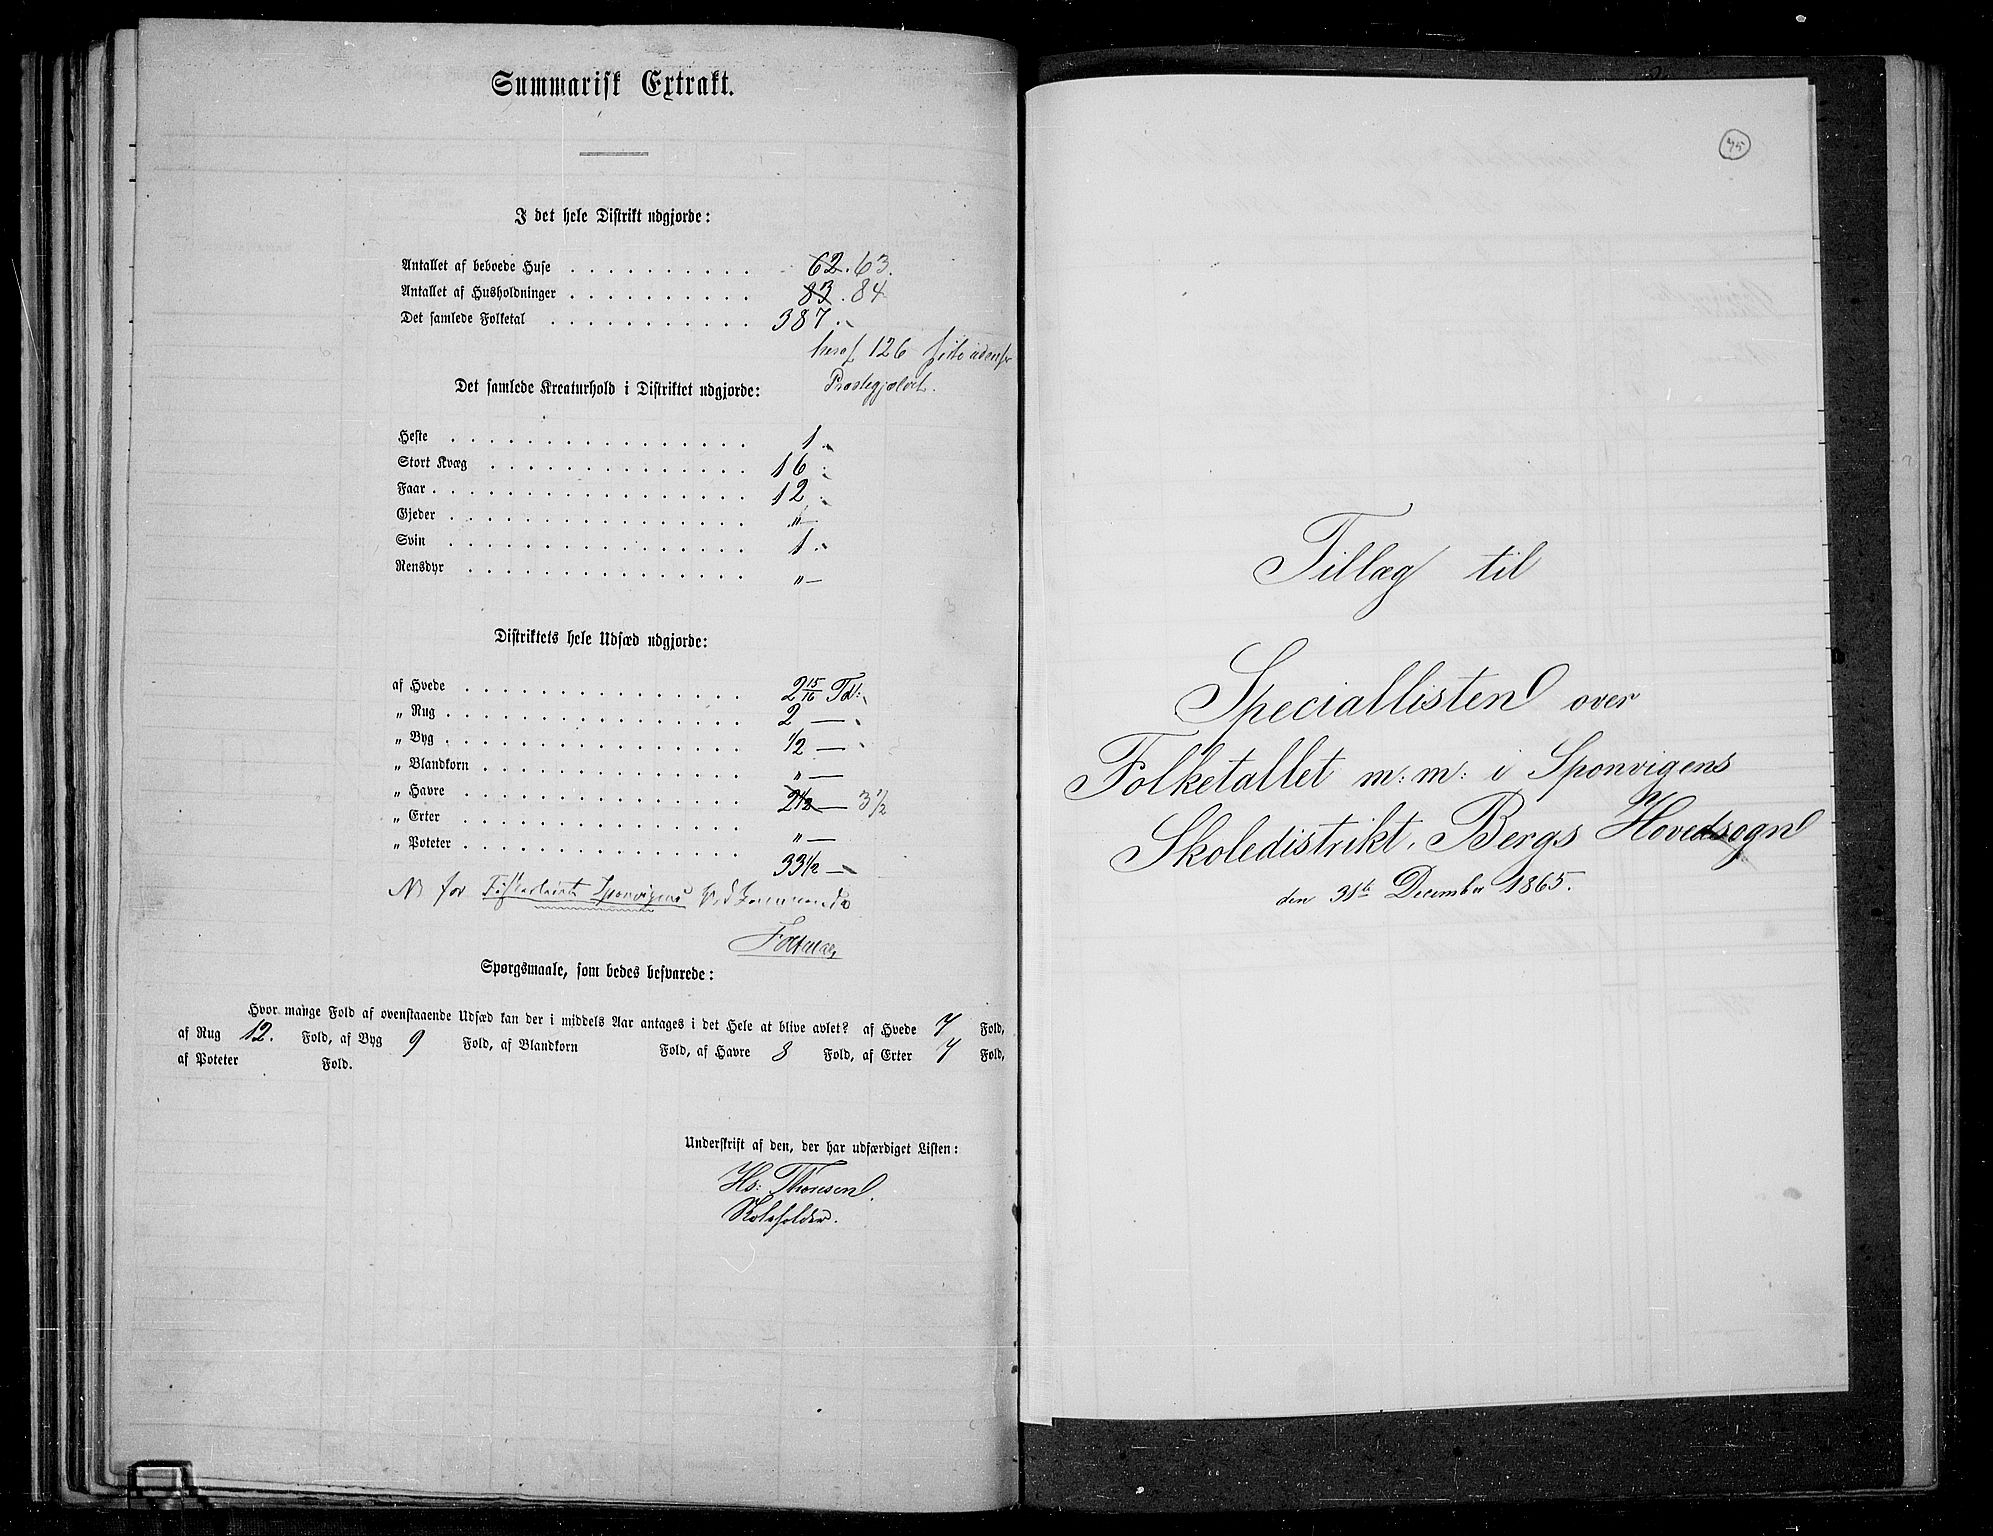 Summarisk Extrakt.
I det hele Distrikt udgjorde:
Antallet af beboede Huse . . . . . . . . . . 62. 63.
Antallet af Husholdninger . . . . . . . . . . 83. 84
Det samlede Folketal . . . . . . . . . . . 387
heraf 126 udenfor
Præstegjældet.
Det samlede Kreaturhold i Distriktet udgjorde:
Heste . . . . . . . . . . . . . . . . 1
Stort Kvæg . . . . . . . . . . . . . . 16
Faar . . . . . . . . . . . . . . . . . 12
Gjeder . . . . . . . . . . . . . . . . „—
Svin . . . . . . . . . . . . . . . . 1
Rensdyr . . . . . . . . . . . . . . . „—
Distriktets hele Udsæd udgjorde:
af Hvede . . . . . . . . . . . . . . . 2 15/16 Td:
„ Rug . . . . . . . . . . . . . . . . 2 —
„ Byg . . . . . . . . . . . . . . . . 1/2 —
„ Blandkorn . . . . . . . . . . . . . . „ —
„ Havre . . . . . . . . . . . . . . . 2 1/2 — 3 1/2
„ Erter . . . . . . . . . . . . . . . „ —
„ Poteter . . . . . . . . . . . . . . . 33 1/2 —
for Sponvigens
Spørgsmaale, som bedes besvarede:
Hvor mange Fold af ovenstaaende Udsæd kan der i middels Aar antages i det Hele at blive avlet? af Hvede 7 Fold,
af Rug 12. Fold, af Byg 9 Fold, af Blandkorn Fold, af Havre 8 Fold, af Erter 7 Fold,
af Poteter Fold.
Underskrift af den, der har udfærdiget Listen:
Hs: Thoresen.
Skoleholder.
45
Tillæg til
Speciallisten over
Folketallet m:m: i Sponvigens
Skoledistrikt, Bergs Hovedsogn
den 31te December 1865.